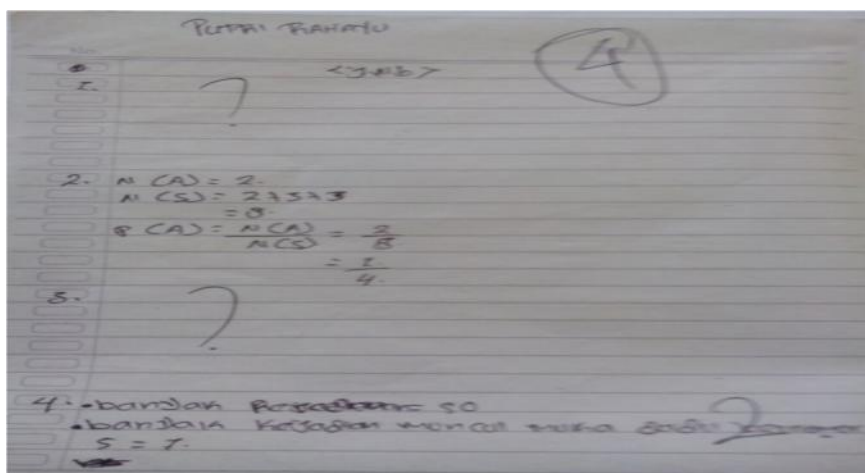 PUTRI RAHAYU
No
<Jwb>
4
1. ?
2. N (A) = 2.
N (S) = 2+3+3
= 8.
P (A) = N(A)/N(S) = 2/8
= 1/4.
3. ?
4. • banyak 50
• banyak Kejadian muncul muka dadu
5 = 7.